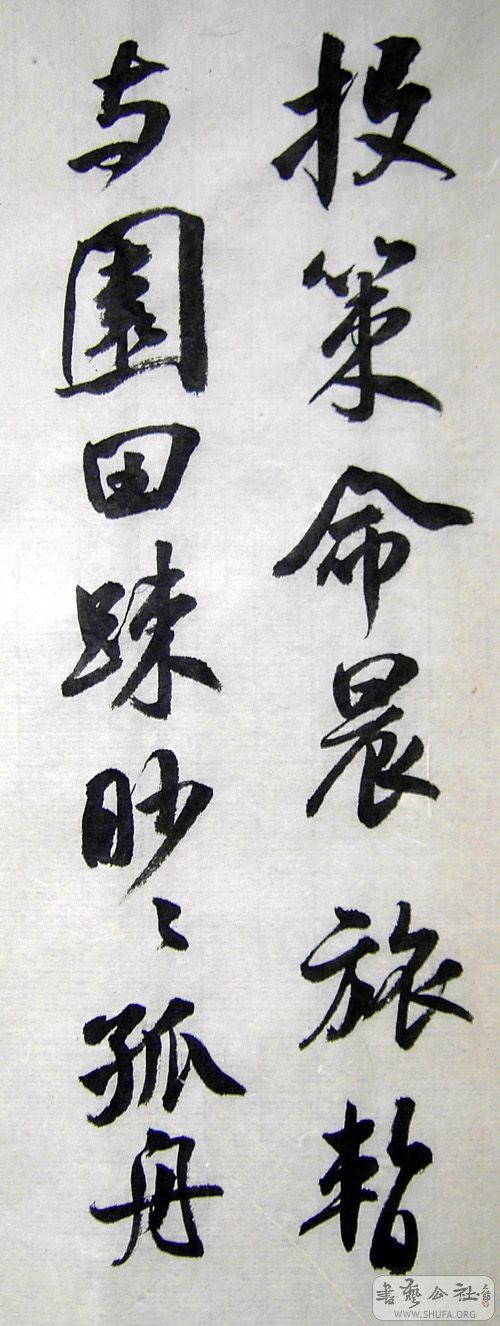 投策命晨旅暫
与園田踈眇〻孤舟
書藝公社
WWW.SHUFA.ORG